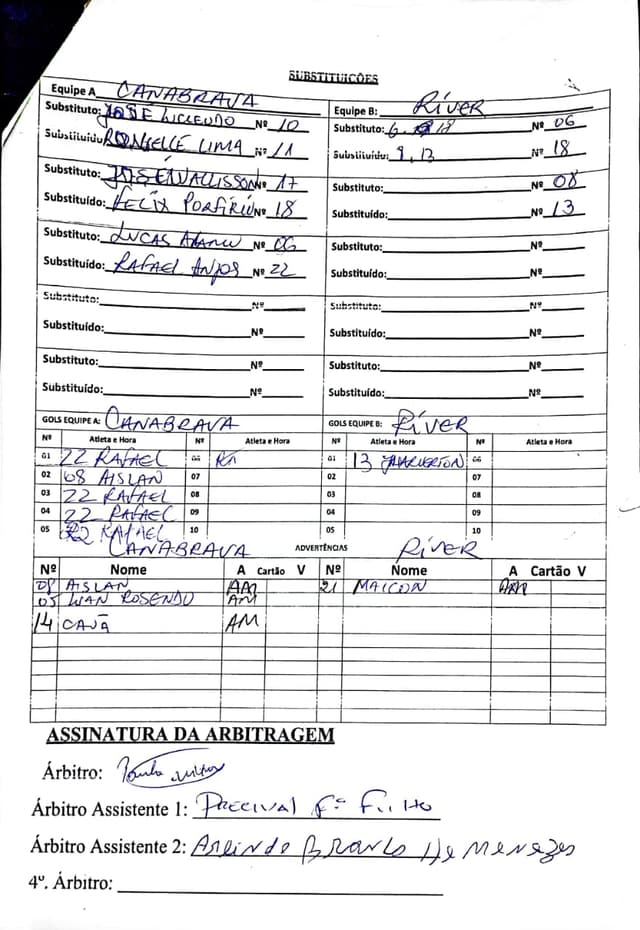 SUBSTITUICÕES
Equipe A CANABRAVA Equipe B: River
Substituto: JOSÉ Nº 10 Substituto: 6 18 Nº 06
Substituído: RONIELLE LIMA Nº 11 Substituído: 9, 13 Nº 18
Substituto: JOSÉ WALLISSON Nº 17 Substituto: Nº 08
Substituído: FELIX PORFÍRIO Nº 18 Substituído: Nº 13
Substituto: LUCAS Nº 06 Substituto: Nº
Substituído: RAFAEL ANJOS Nº 22 Substituído: Nº
Substituto: Nº Substituto: Nº
Substituído: Nº Substituído: Nº
Substituto: Nº Substituto: Nº
Substituído: Nº Substituído: Nº
GOLS EQUIPE A: CANABRAVA GOLS EQUIPE B: River
Nº Atleta e Hora Nº Atleta e Hora Nº Atleta e Hora Nº Atleta e Hora
01 22 RAFAEL 06 01 13 06
02 08 AISLAN 07 02 07
03 22 RAFAEL 08 03 08
04 22 RAFAEL 09 04 09
05 22 RAFAEL 10 05 10
CANABRAVA ADVERTÊNCIAS River
Nº Nome A Cartão V Nº Nome A Cartão V
08 AISLAN AM 21 MAICON AM
05 WAN ROSENDO AM
14 CAUÃ AM
ASSINATURA DA ARBITRAGEM
Árbitro:
Árbitro Assistente 1: Percival Fº Filho
Árbitro Assistente 2: Arlindo Branco De Menezes
4º. Árbitro: